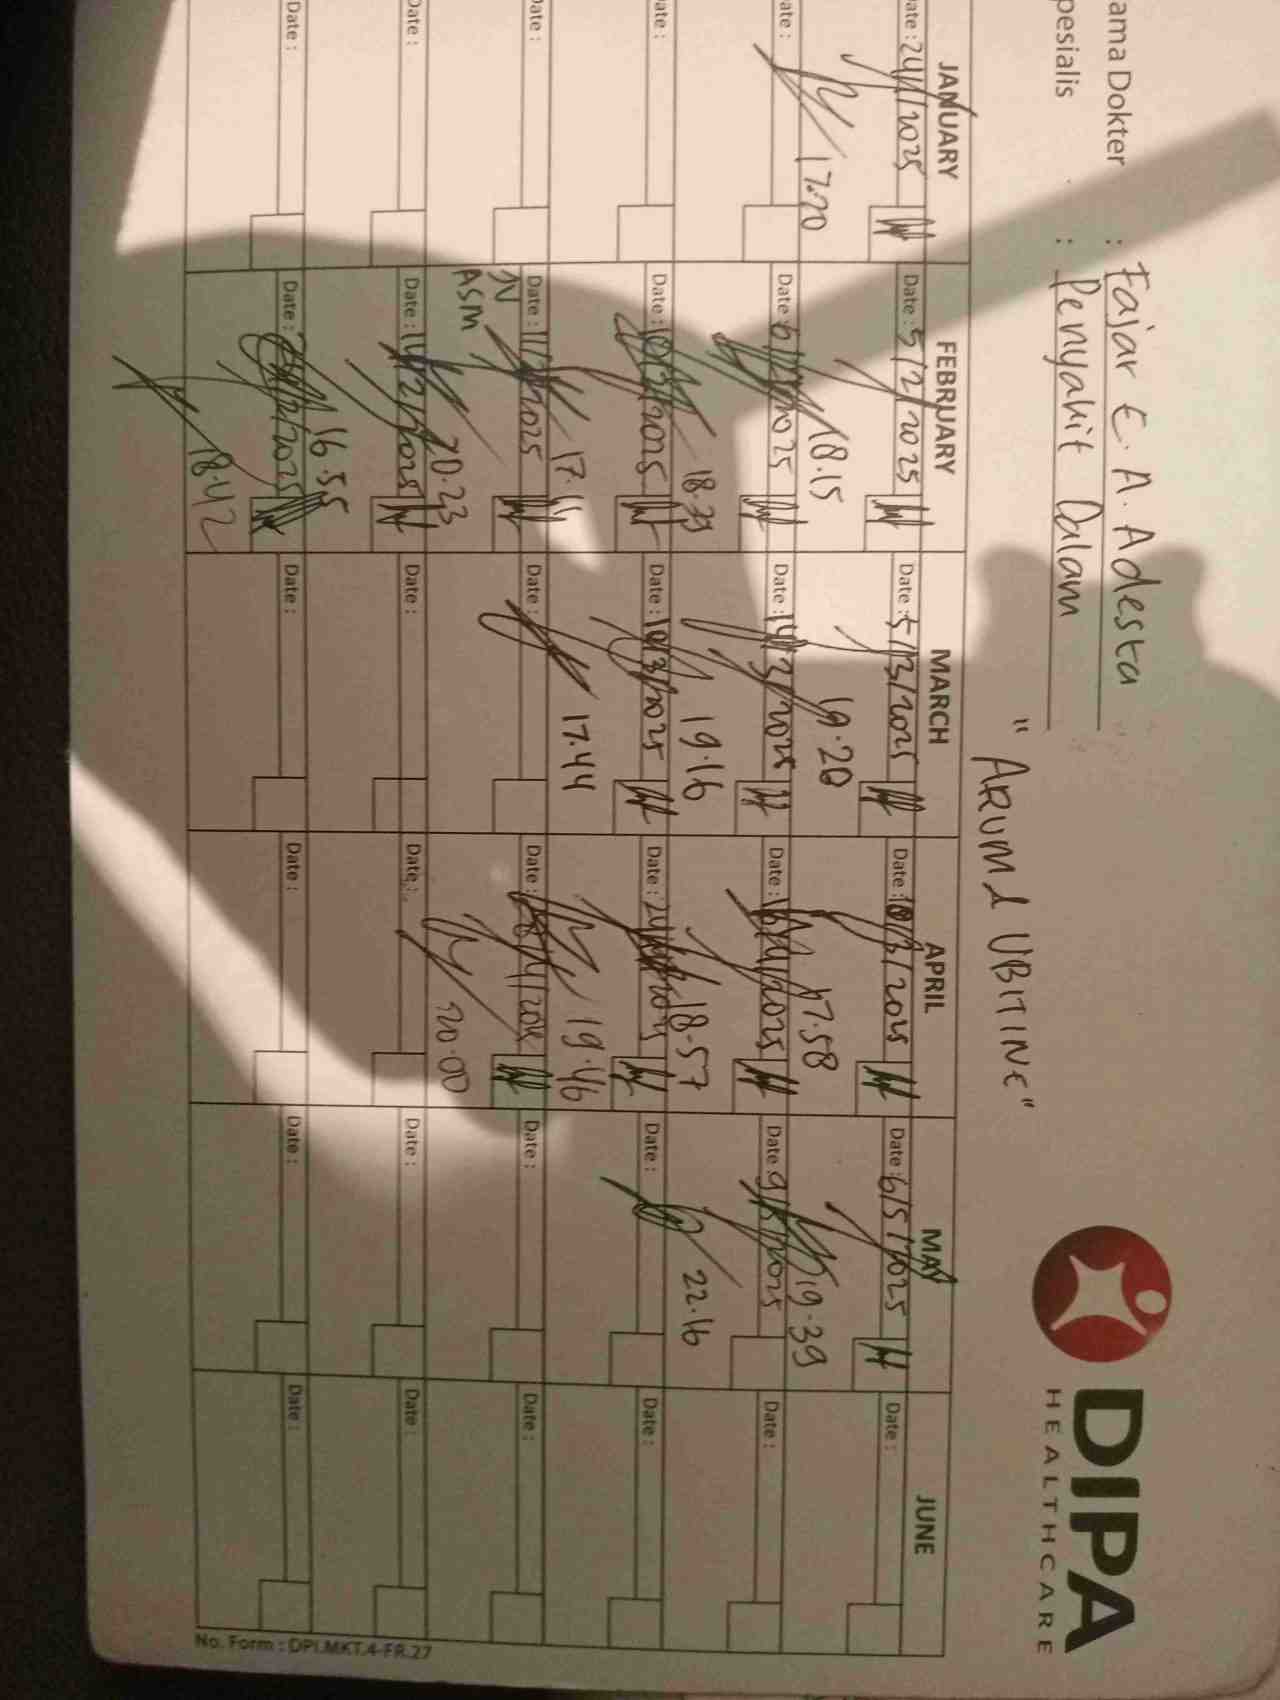 ama Dokter : Fajar E. A. Adesta
pesialis : Penyakit Dalam
DIPA
HEALTHCARE
" ARUM 1 UBITINE"
JANUARY FEBRUARY MARCH APRIL MAY JUNE
ate : 24/1/2025 Date : 5/2/2025 Date : 5/3/2025 Date : 10/3/2025 Date : 6/5/2025 Date :
17.20 18.15 19.20 17.58 19.39
ate : Date : 6/2/2025 Date : 14/3/2025 Date : 16/4/2025 Date 9/5/2025 Date :
18.39 19.16 18.57 22.16
Date : Date : 10/2/2025 Date : 10/3/2025 Date : 24/4/2025 Date : Date :
17.44 19.46
Date : Date : 11/2/2025 Date : Date : 28/4/ Date : Date :
JV
ASM
20.23 20.00
Date : Date : 14/2/2025 Date : Date : Date : Date :
16.55
Date : Date : Date : Date : Date : Date :
18.42
No. Form : DPI.MKT.4-FR.27